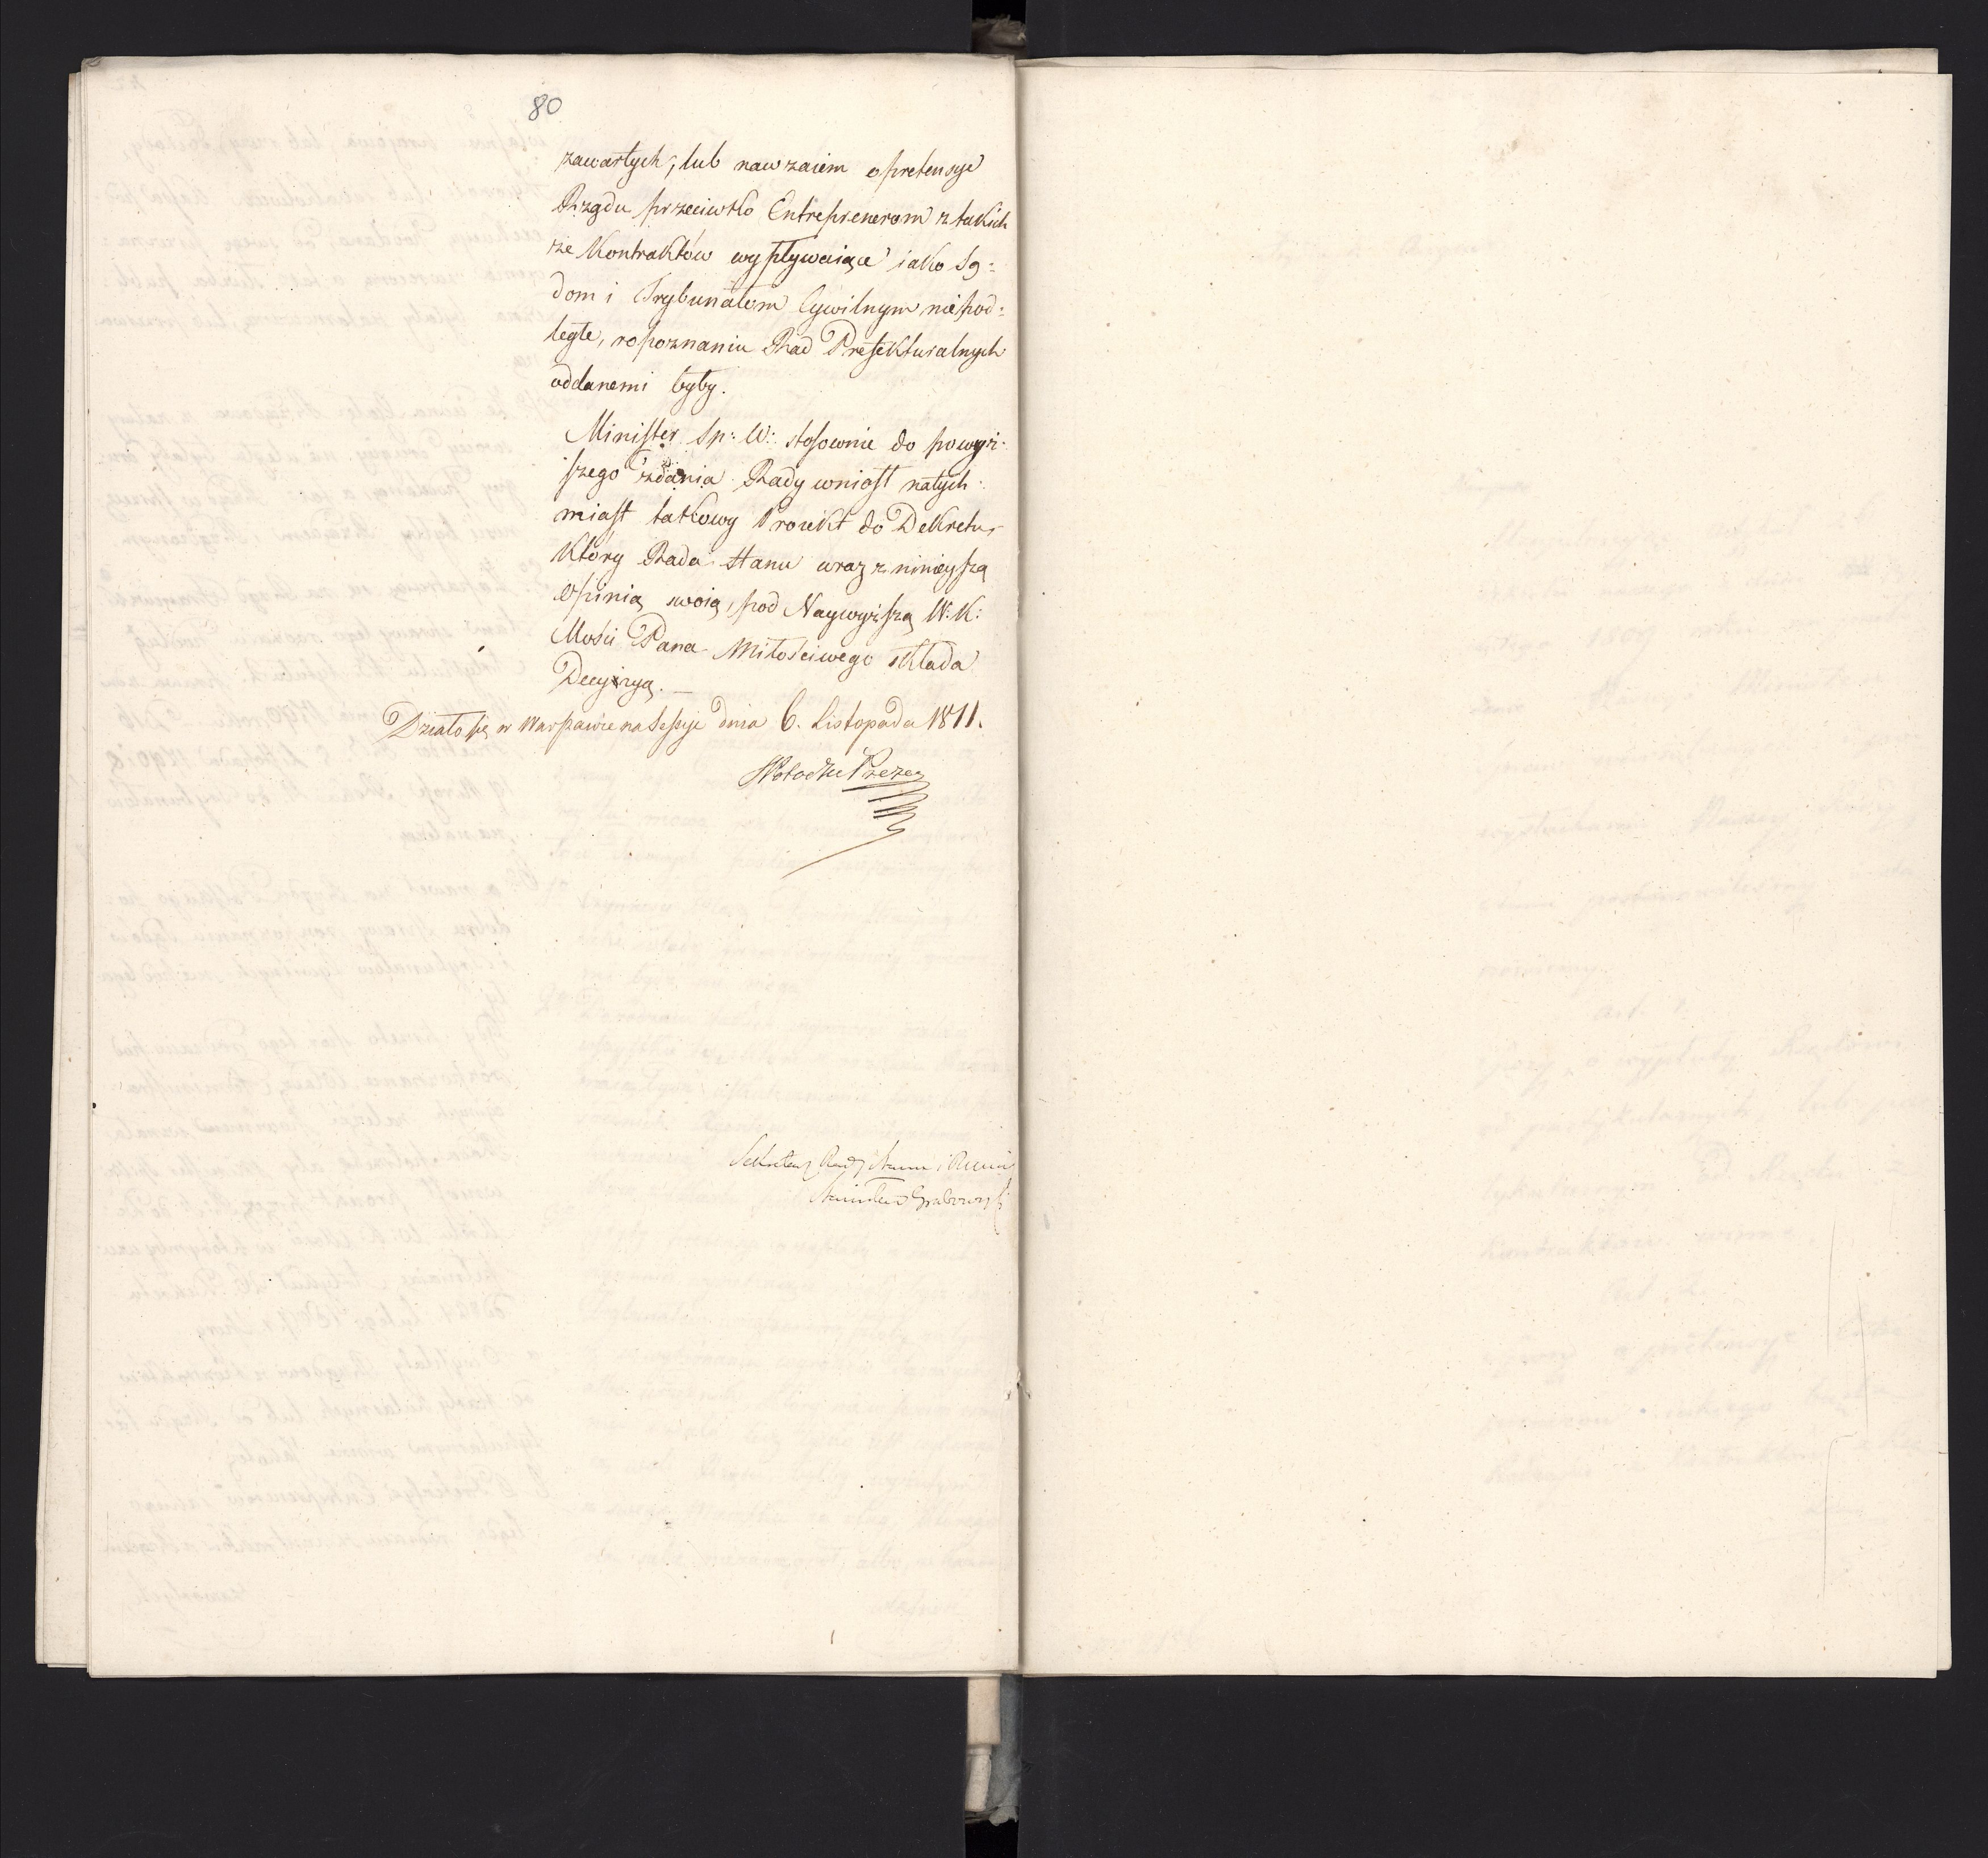 80
zawartych, lub nawzaiem o pretensye
Rządu przeciwko Entreprenerom z takich
że Kontraktów wypływaiące iako Są:
dom i Trybunałom Cywilnym niepod:
ległe, rozpoznaniu Rad Prefekturalnych
oddanemi były.
Minister Sp: W: stosownie do powyż:
szego zdania Rady wniosł natych:
miast takowy Proiekt do Dekretu,
który Rada Stanu wraz z ninieyszą
Opinią swoią, pod Naywyższą W: K:
Mości Pana Miłościwego składa
Decyzyą. —
Działo się w Warszawie na Sessyi dnia 6. Listopada 1811.
Potocki Prezes
Sekretarz Rady Stanu i
Stanisław Grabowski